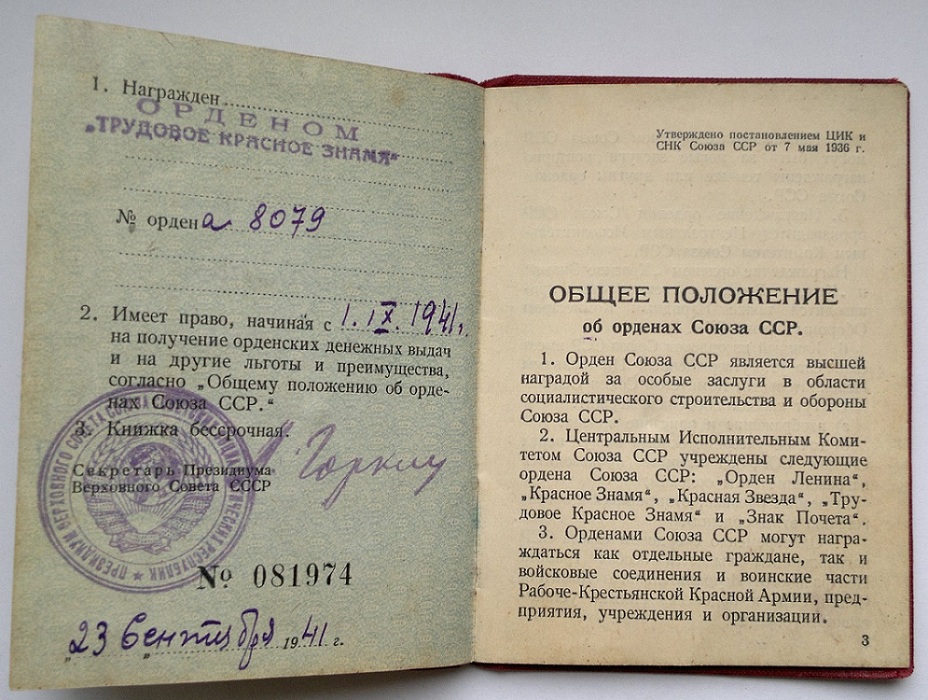 1. Награжден
ОРДЕНОМ
„ТРУДОВОЕ КРАСНОЕ ЗНАМЯ“
№ ордена 8079
2. Имеет право, начиная с 1.IX.1941г.
на получение орденских денежных выдач
и на другие льготы и преимущества,
согласно „Общему положению об орде-
нах Союза ССР.“
3. Книжка бессрочная.
Секретарь Президиума
Верховного Совета СССР
А. Горкин
ПРЕЗИДИУМ ВЕРХОВНОГО СОВЕТА СОЮЗА
№ 081974
„23 Сентября 1941 г.
Утверждено постановлением ЦИК и
СНК Союза ССР от 7 мая 1936 г.
ОБЩЕЕ ПОЛОЖЕНИЕ
об орденах Союза ССР.
1. Орден Союза ССР является высшей
наградой за особые заслуги в области
социалистического строительства и обороны
Союза ССР.
2. Центральным Исполнительным Коми-
тетом Союза ССР учреждены следующие
ордена Союза ССР: „Орден Ленина“,
„Красное Знамя“, „Красная Звезда“, „Тру-
довое Красное Знамя“ и „Знак Почета“.
3. Орденами Союза ССР могут награ-
ждаться как отдельные граждане, так и
войсковые соединения и воинские части
Рабоче-Крестьянской Красной Армии, пред-
приятия, учреждения и организации.
3